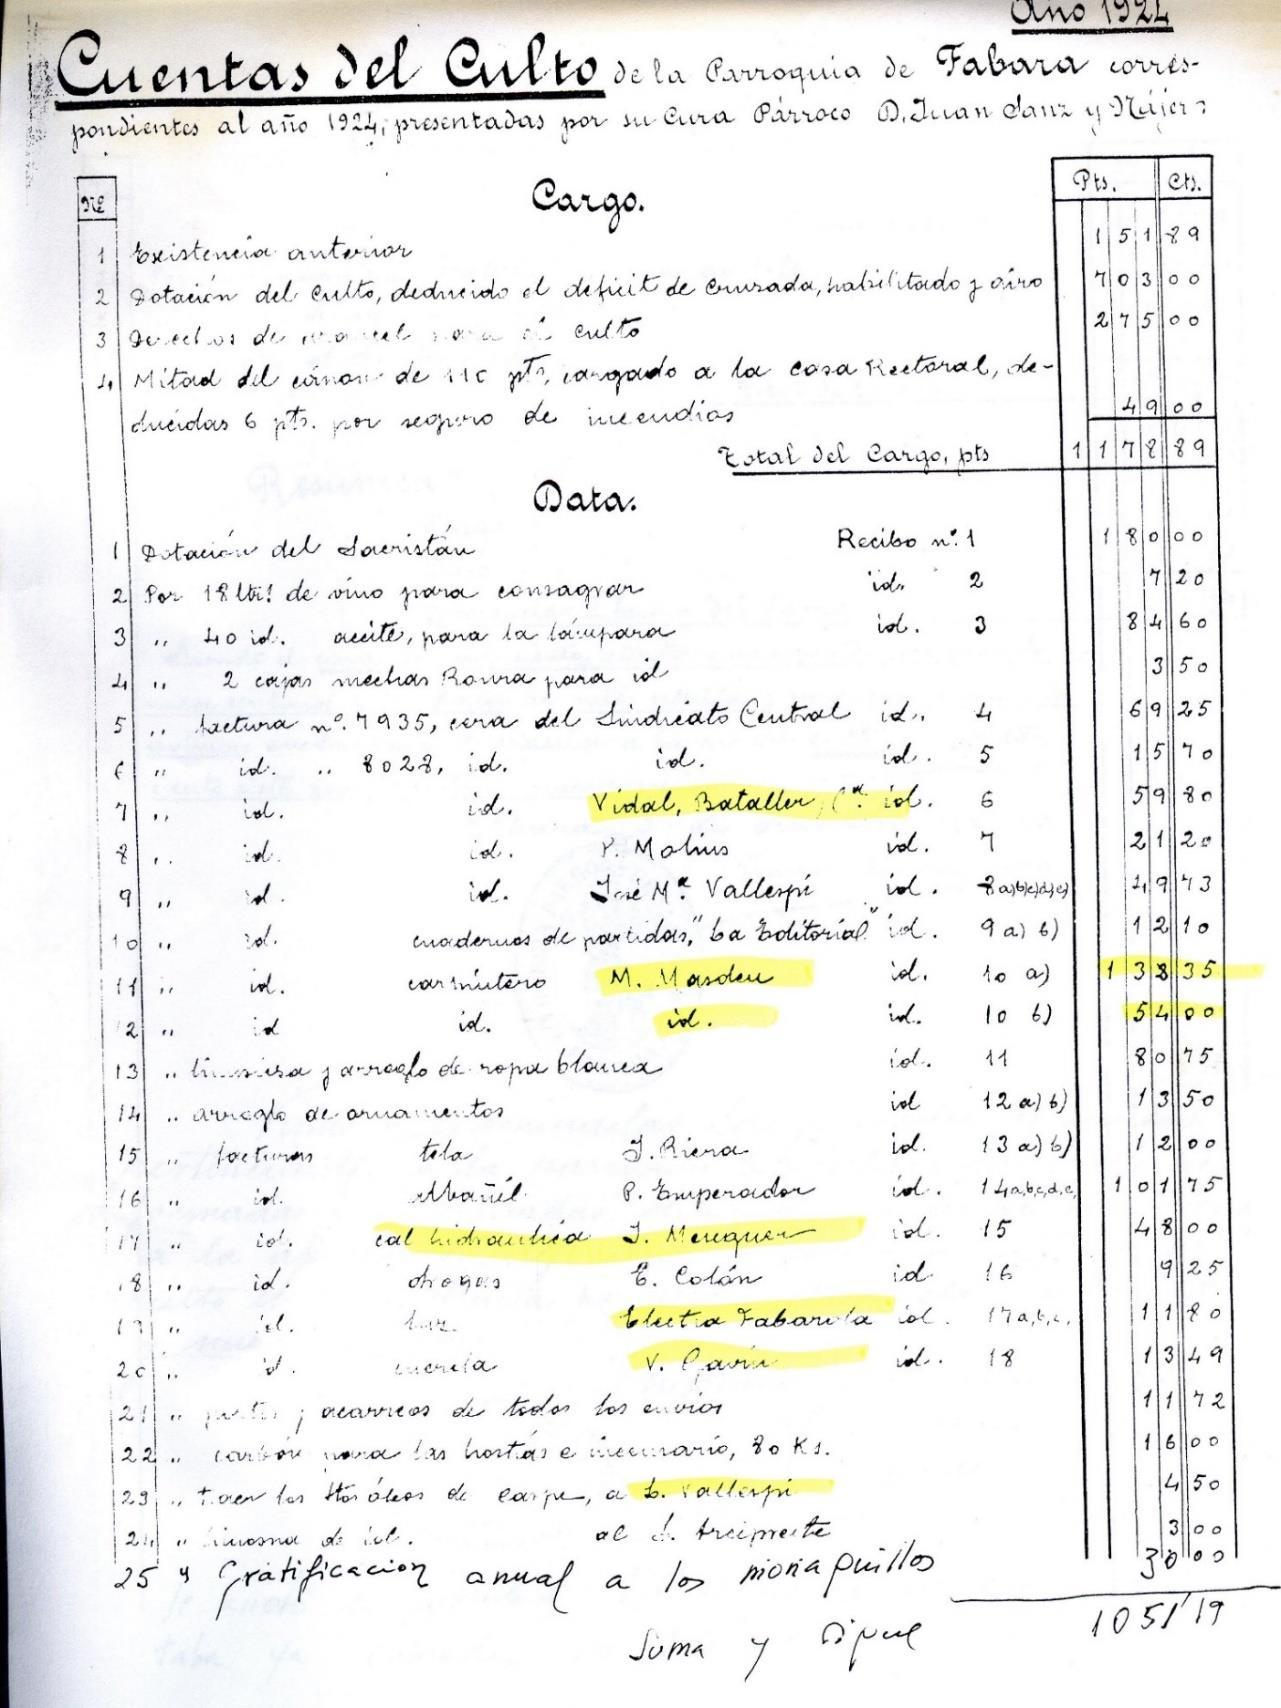 Año 1924
Cuentas del Culto de la Parroquia de Fabara corres-
pondientes al año 1924, presentadas por su Cura Párroco D. Juan Sanz y Nájer
Nº Cargo. Pts. Cts.
1 Existencia anterior 151 89
2 Dotación del Culto, deducido el deficit de Cruzada, habilitado y giro 703 00
3 Derechos de arancel para el culto 275 00
4 Mitad del cánon de 110 pts. cargado a la casa Rectoral, de-
ducidas 6 pts. por seguro de incendios 49 00
Total del Cargo, pts 1178 89
Data.
1 Dotación del Sacristán Recibo nº. 1 180 00
2 Por 18 lts. de vino para consagrar id. 2 7 20
3 " 40 id. aceite, para la lámpara id. 3 84 60
4 " 2 cajas mechas Roura para id 3 50
5 " factura nº. 7935, cera del Sindicato Central id. 4 69 25
6 " id. " 8028, id. id. id. 5 15 70
7 " id. id. Vidal, Bataller, Cª. id. 6 59 80
8 " id. id. P. Molins id. 7 21 20
9 " id. id. José Mª. Vallespí id. 8 a)b)c)d)e) 49 73
10 " id. cuadernos de partidas, "La Editorial" id. 9 a) b) 12 10
11 " id. carpintero M. Masdeu id. 10 a) 138 35
12 " id id. id. id. 10 b) 54 00
13 " limpieza y arreglo de ropa blanca id. 11 80 75
14 " arreglo de ornamentos id 12 a) b) 13 50
15 " facturas tela J. Riera id. 13 a) b) 12 00
16 " id. albañil P. Emperador id. 14 a,b,c,d,e, 101 75
17 " id. cal hidraulica J. Meseguer id. 15 48 00
18 " id. drogas E. Colón id 16 9 25
19 " id. luz Electra Fabarola id. 17 a,b,c, 11 80
20 " id. V. Gavín id. 18 13 49
21 " portes y acarreos de todos los envios 11 72
22 " carbón para las hostias e incensario, 80 Ks. 16 00
23 " traer los Stos óleos de Caspe, a L. Vallespí 4 50
24 " limosna de id. al S. Arcipreste 3 00
25 " Gratificacion anual a los monaguillos 30 00
Suma y sigue 1051'19